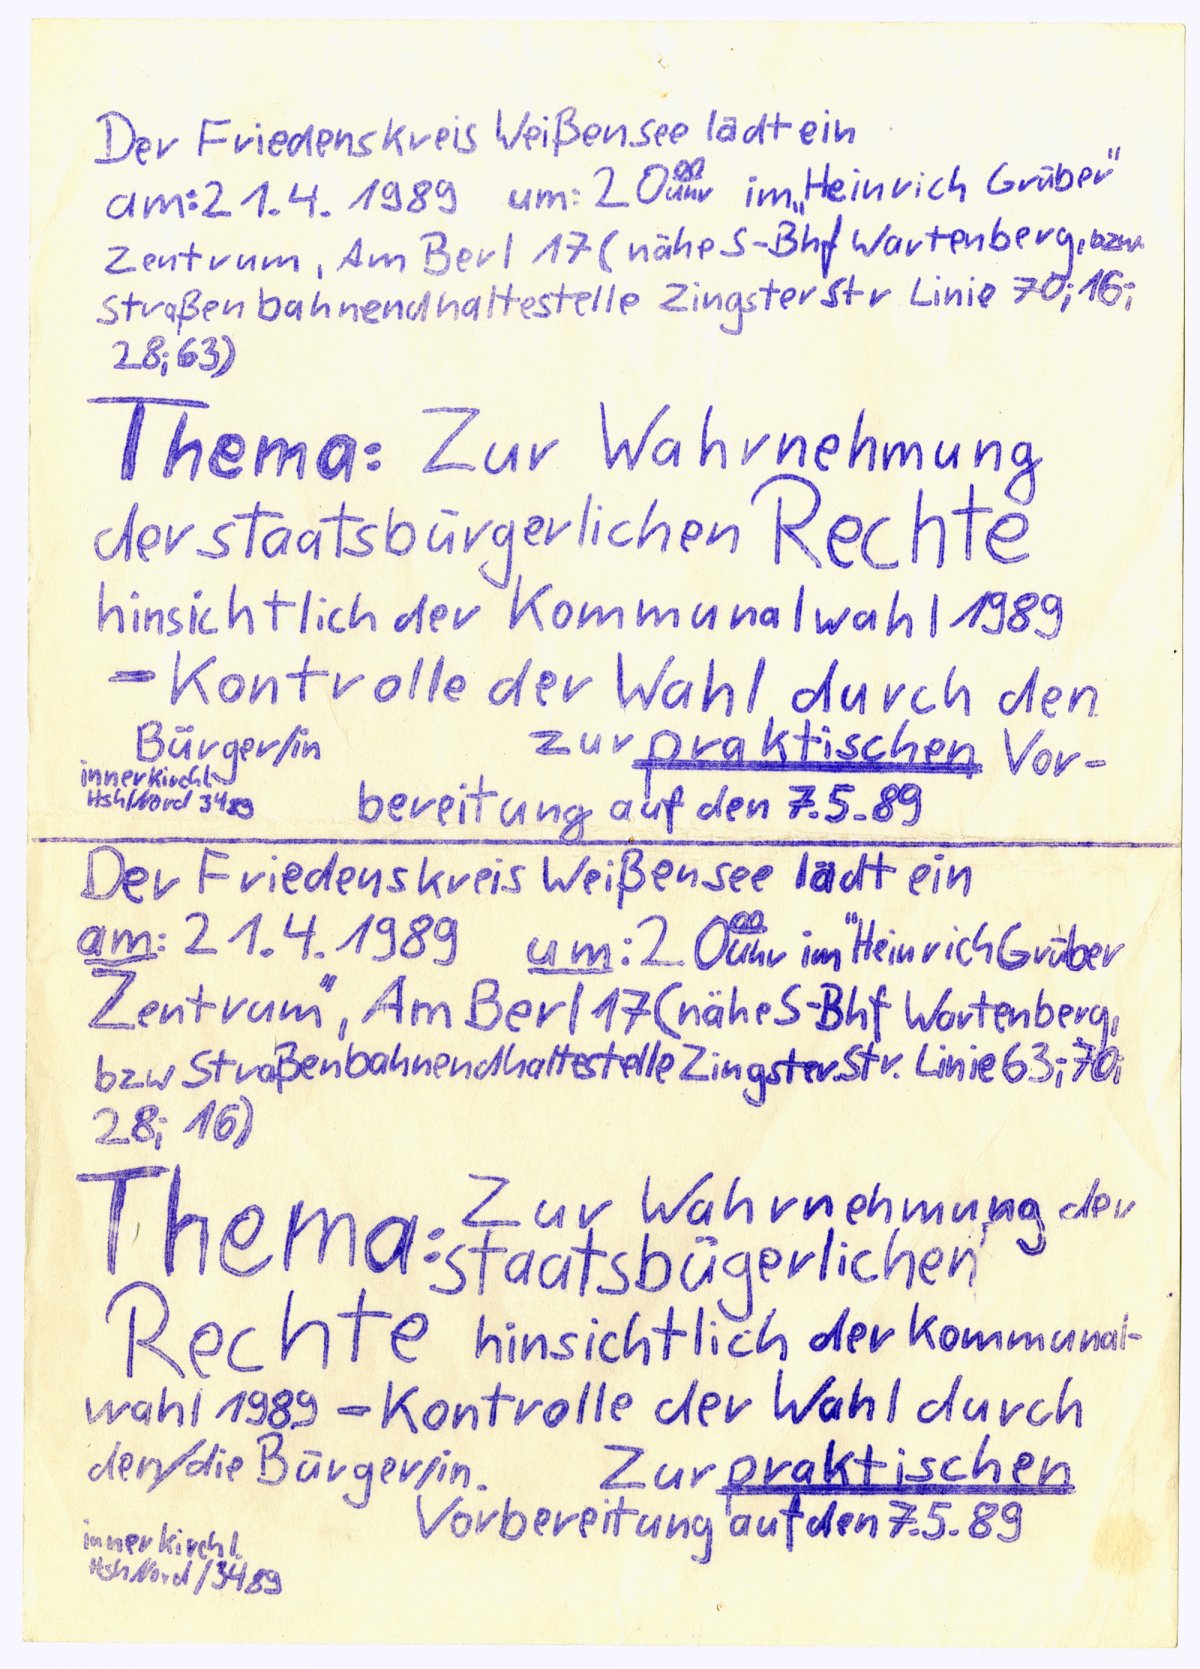 Der Friedenskreis Weißensee lädt ein
am: 21.4. 1989 um: 20 00 Uhr im „Heinrich Grüber"
Zentrum, Am Berl 17 (nähe S-Bhf Wartenberg, bzw.
Straßenbahnendhaltestelle Zingster Str Linie 70; 16;
28; 63)
Thema: Zur Wahrnehmung
der staatsbürgerlichen Rechte
hinsichtlich der Kommunalwahl 1989
- Kontrolle der Wahl durch den
Bürger/in zur praktischen Vor-
innerkirchl.
HshNord 3489
bereitung auf den 7.5.89
Der Friedenskreis Weißensee lädt ein
am: 21.4.1989 um: 20 00 Uhr im "Heinrich Grüber
Zentrum", Am Berl 17 (nähe S-Bhf Wartenberg,
bzw Straßenbahnendhaltestelle Zingster Str. Linie 63; 70;
28; 16)
Thema: Zur Wahrnehmung der
staatsbügerlichen
Rechte hinsichtlich der Kommunal-
wahl 1989 - Kontrolle der Wahl durch
den/die Bürger/in. Zur praktischen
Vorbereitung auf den 7.5.89
innerkirchl.
HshNord/3489